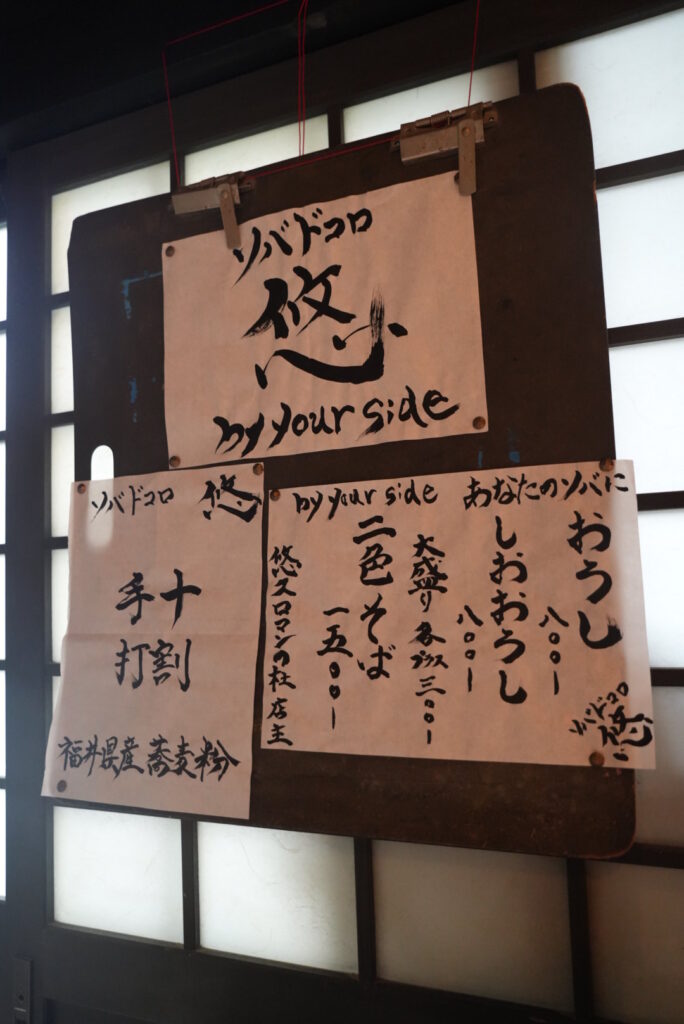 ソバドコロ
悠
by your side
ソバドコロ 悠
十割
手打
福井県産蕎麦粉
by your side あなたのソバに
おろし
八〇〇ー
しおおろし
八〇〇ー
大盛り各プラス三〇〇ー
二色そば
一五〇〇ー
悠スロマンの杜店主
ソバドコロ
悠